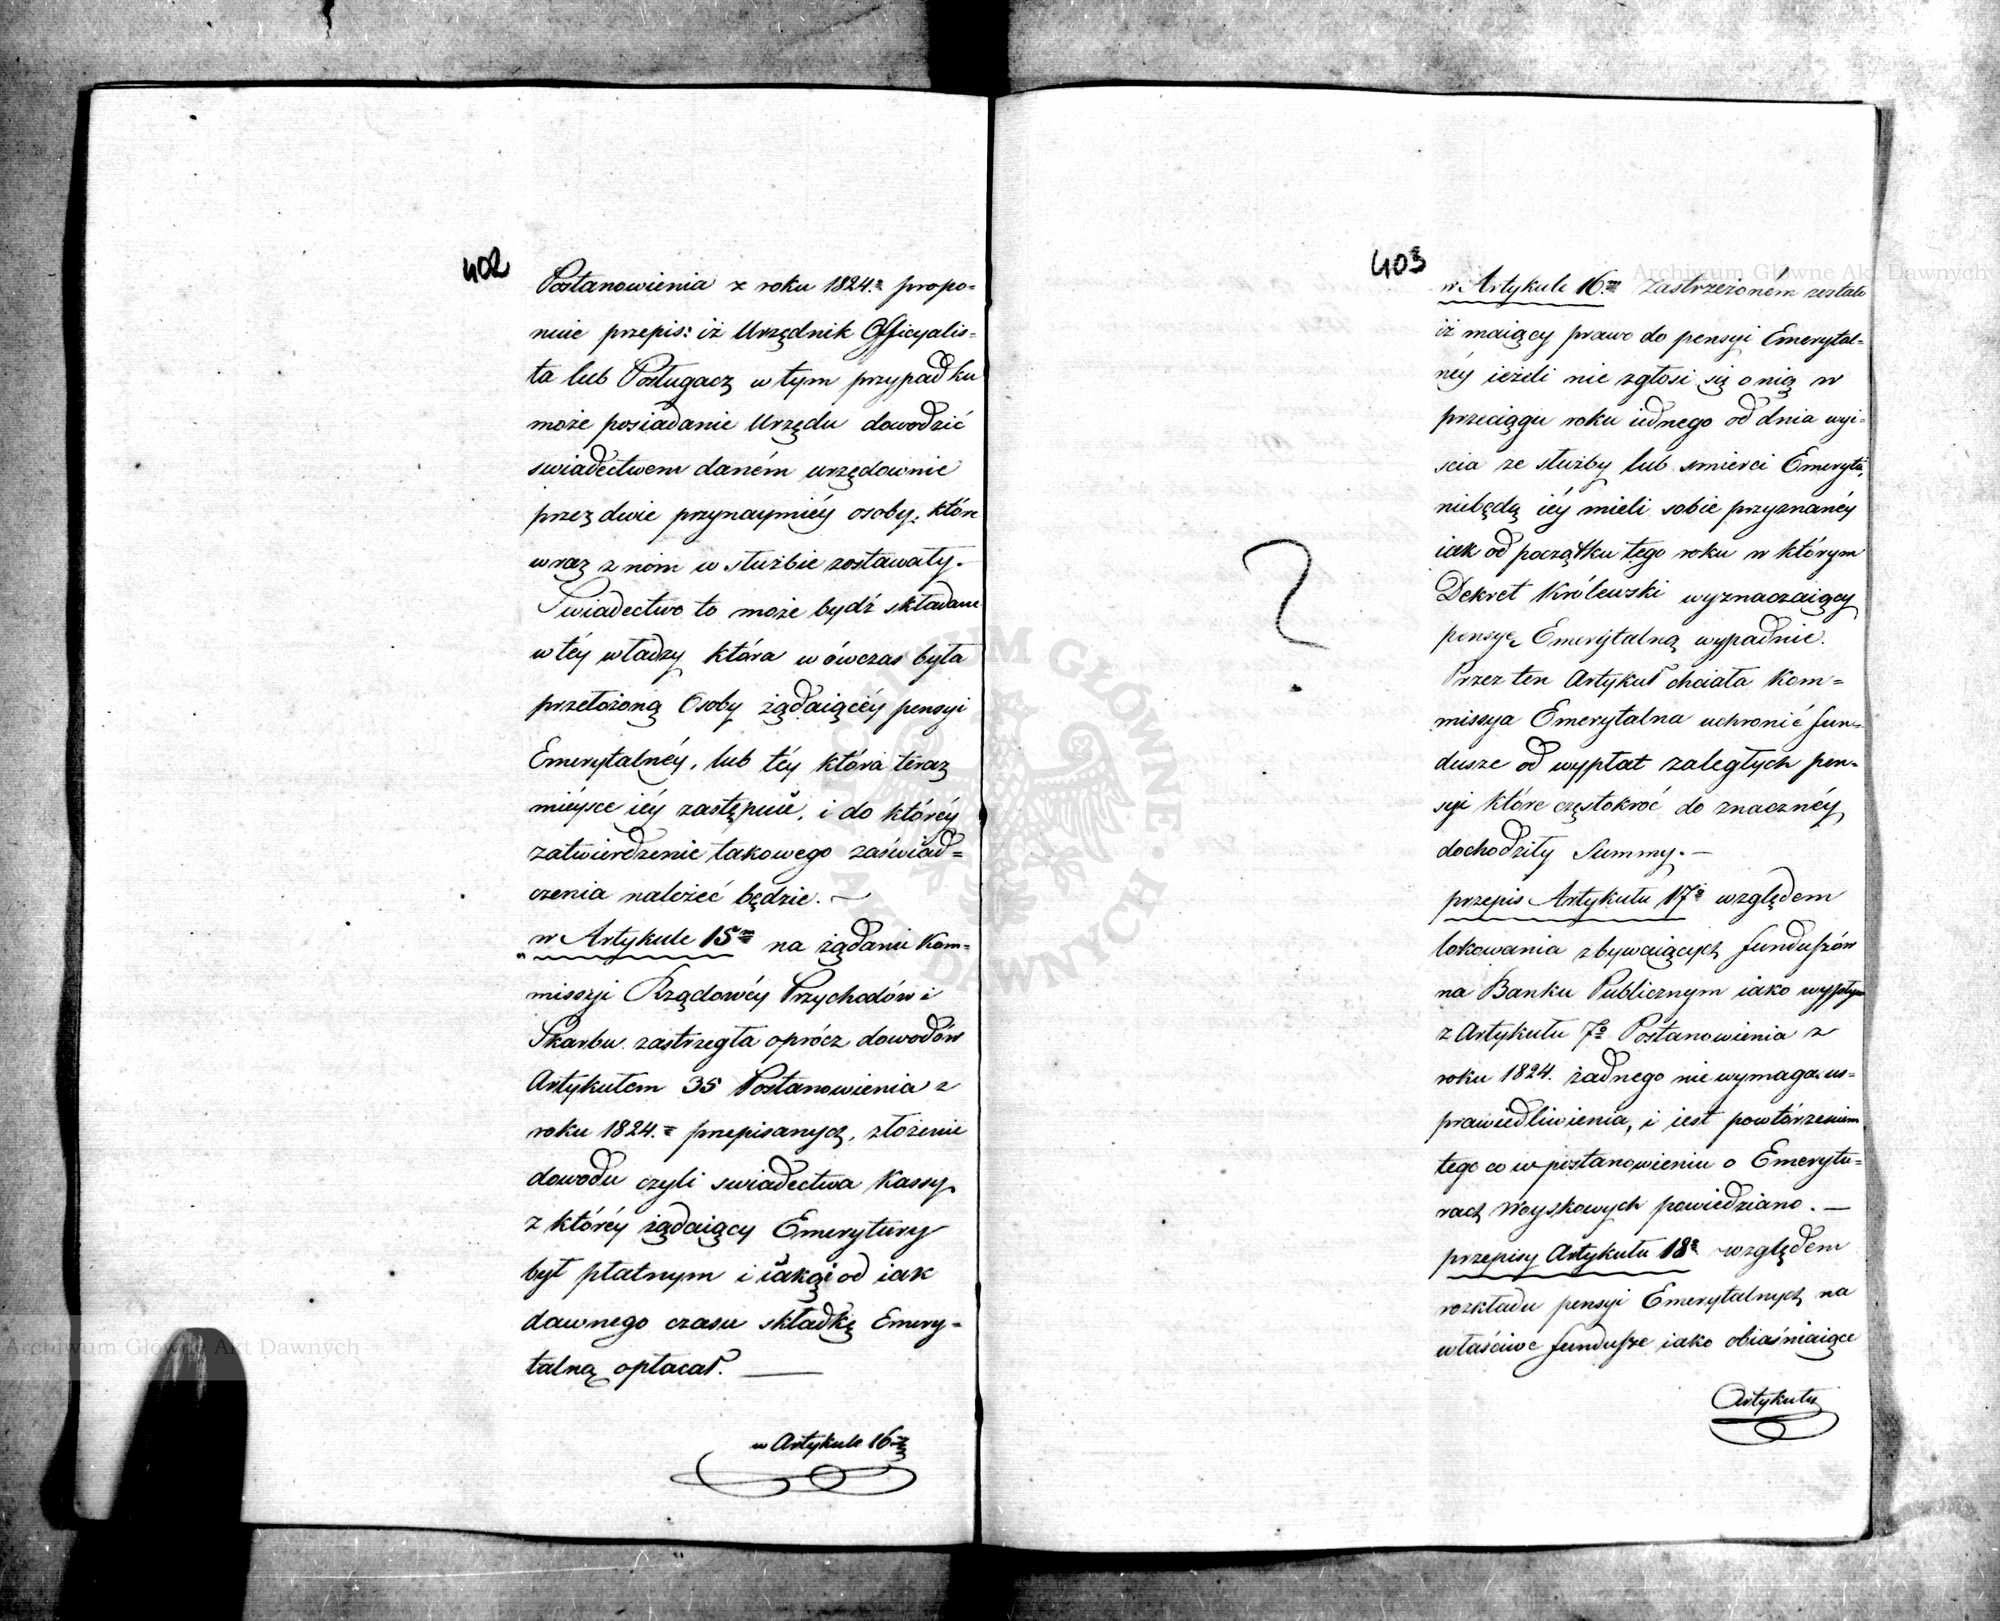 402
Postanowienia z roku 1824.º propo-
nuie przepis: iż Urzędnik Officyalis-
ta lub Posługacz w tym przypadku
może posiadanie Urzędu dowodzić
swiadectwem daném urzędownie
przez dwie przynaymniéy osoby, które
wraz z nim w służbie zostawały.
Swiadectwo to może bydź składane
w téy władzy która wówczas była
przełożoną Osoby żądaiącéy pensyi
Emerytalnéy, lub téy która teraz
mieysce iéy zastępuie, i do któréy
zatwierdzenie takowego zaświad=
czenia należeć będzie. —
w Artykule 15m na żądanie Kom=
missyi Rządowéy Przychodów i
Skarbu zastrzegła oprócz dowodów
Artykułem 35 Postanowienia z
roku 1824.º przepisanych, złożenie
dowodu czyli swiadectwa Kassy,
z któréy żądaiący Emerytury
był płatnym i iaką i od iak
dawnego czasu składkę Emery-
talną opłacał. —
w Artykule 16m
403
w Artykule 16.m zastrzeżoném zostało
iż maiący prawo do pensyi Emerytal=
néy ieżeli nie zgłosi się o nią w
przeciągu roku iednego od dnia wyi-
scia ze służby lub smierci Emeryta,
niebędą iéy mieli sobie przyznanéy
iak od początku tego roku w którym
Dekret Królewski wyznaczaiący
pensyę Emerytalną wypadnie.
Przez ten Artykuł chciała Kom=
missya Emerytalna uchronić fun-
dusze od wypłat zaległych pen-
syi które częstokroć do znacznéy
dochodziły Summy. —
przepis Artykułu 17º względem
lokowania zbywaiących funduszów
na Banku Publicznym iako wypływ
z Artykułu 7º Postanowienia z
roku 1824. żadnego nie wymaga us=
prawiedliwienia, i iest powtórzeniem
tego co w postanowieniu o Emerytu=
rach Woyskowych powiedziano. —
przepisy Artykułu 18º względem
rozkładu pensyi Emerytalnych na
właściwe fundusze iako obiaśniaiące
Artykuły
?
Archiwum Główne Akt Dawnych
Archiwum Główne Akt Dawnych
ARCHIWUM GŁÓWNE AKT DAWNYCH